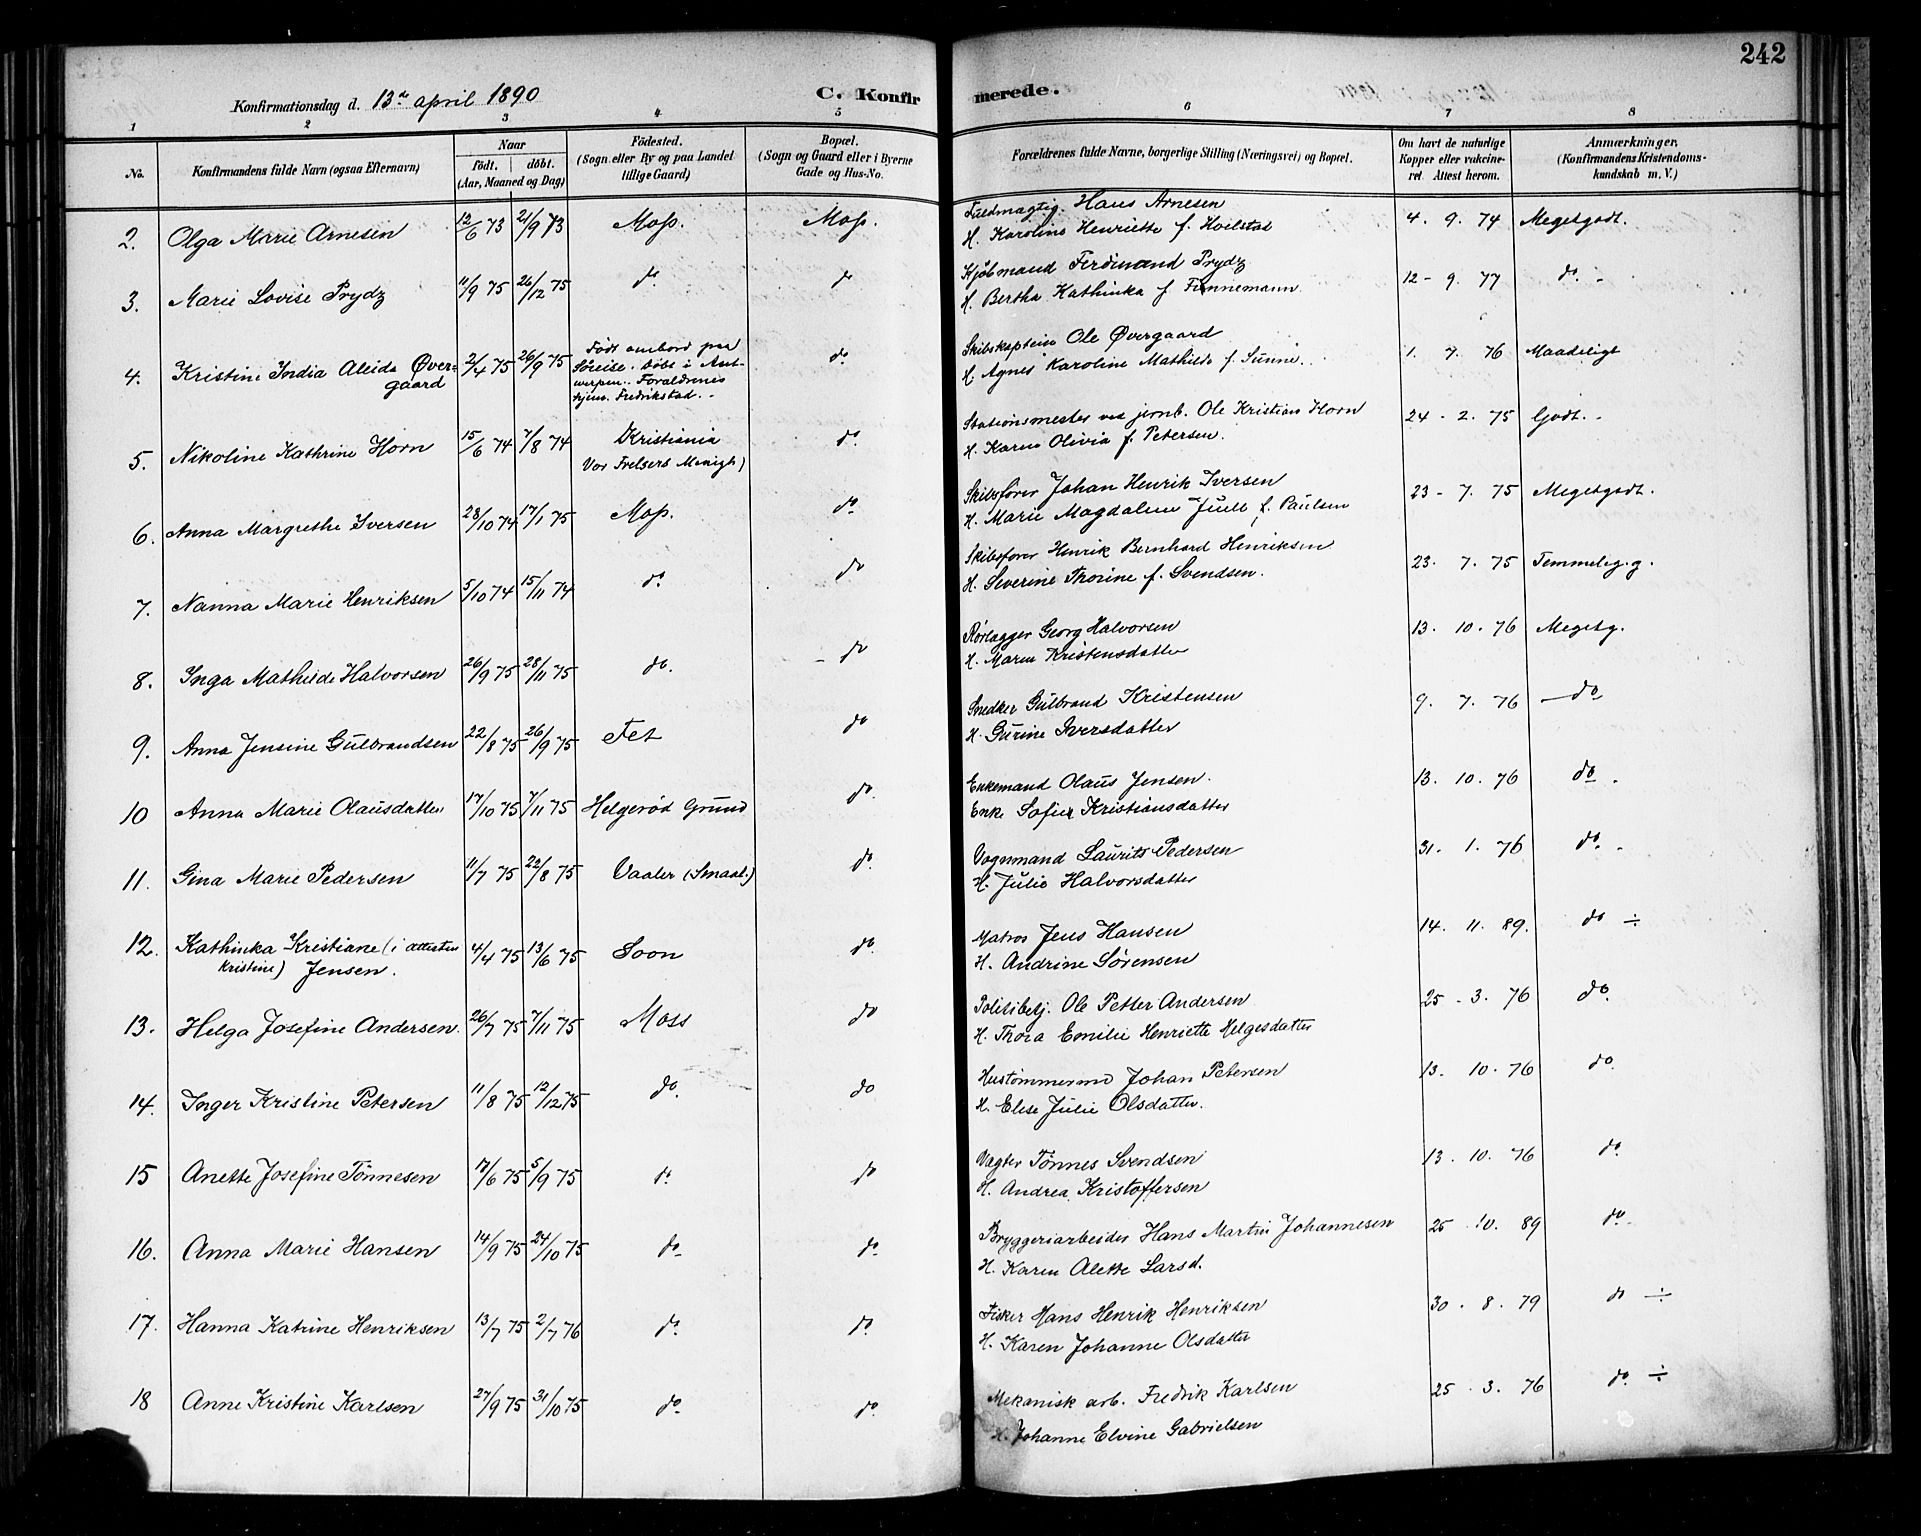 242
Konfirmationsdag d. 13de april 1890 C. Konfirmerede.
1 2 3 4 5 6 7 8
No. Konfirmandens fulde Navn (ogsaa Efternavn) Naar födt. döbt. (Aar, Maaned og Dag) Födested. (Sogn eller By og paa Landet tillige Gaard) Bopæl. (Sogn og Gaard eller i Byerne Gade og Hus-No. Forældrenes fulde Navne, borgerlige Stilling (Næringsvei) og Bopæl. Om havt de naturlige Kopper eller vakcineret. Attest herom. Anmærkninger. (Konfirmandens Kristendomskundskab m. V.)
2. Olga Marie Arnesen 12/6 73 21/9 73 Moss. Moss. Fuldmægtig Hans Arnesen 4. 9. 74 Megetgodt.
H. Karoline Henriette f. Hvilstad
3. Marie Lovise Prydz 11/9 75 26/12 75 do do Kjöbmand Ferdinand Prydz 12 - 9. 77 do. -
H. Bertha Kathinka f. Finnemann
4. Kristine India Aleida Över= 2/4 75 26/9 75 Födt ombord paa do Skibskaptein Ole Övergaard 1. 7. 76 Maadeligt
gaard Söreise. döbt i Ant-
werpen. Foraldrenes
hjem. Fredrikstad. H. Agnes Karoline Mathilde f. Sunne.
5. Nikoline Kathrine Horn 15/6 74 7/8 74 Kristiania do. Stationsmester ved jernb. Ole Kristian Horn 24 - 2. 75 Godt. -
Vor Frelsers Menigh) H. Karen Olivia f. Petersen.
6. Anna Margrethe Iversen 28/10 74 17/1 75 Moss. do Skibsförer Johan Henrik Iversen 23 - 7. 75 Megetgodt.
H. Marie Magdalene Juell f. Paulsen
7. Nanna Marie Henriksen 5/10 74 15/11 74 do do Skibsförer Henrik Bernhard Henriksen 23. 7. 75 Temmelig.g.
H. Severine Thorine f. Svendsen.
8. Inga Mathilde Halvorsen 26/9 75 28/11 75 do. do Rörlægger Georg Halvorsen 13. 10. 76 Megetg.
H. Maren Kristensdatter
9. Anna Jensine Gulbrandsen 22/8 75 26/9 75 Fet do Snedker Gulbrand Kristensen 9. 7. 76 do
H. Gurine Iversdatter
10 Anna Marie Olausdatter 17/10 75 7/11 75 Helgeröd Grund do. Enkemand Olaus Jensen. 13. 10. 76 do.
Enke Sofie Kristiansdatter
11. Gina Marie Pedersen 11/7 75 22/8 75 Vaaler (Smaal.) do. Vognmand Laurits Pedersen 31. 1. 76 do.
H. Julie Halvorsdatter
12. Kathinka Kristiane (i attesten 4/4 75 13/6 75 Soon do. Matros Jens Hansen 14. 11. 89. do ÷
Kristine) Jensen. H. Andrine Sörensen
13. Helga Josefine Andersen. 26/7 75 7/11 75 Moss do Politibetj. Ole Petter Andersen 25 - 3. 76 do.
H. Thora Emilie Henriette Helgesdatter
14. Inger Kristine Petersen 11/8 75 12/12 75 do. do Hustömmermd Johan Petersen 13. 10. 76 do
H. Elise Julie Olsdatter.
15 Anette Josefine Tönnesen 17/6 75 5/9 75 do do Vægter Tönnes Svendsen 13. 10. 76 do.
H. Andrea Kristoffersen
16. Anna Marie Hansen 14/9 75 24/10 75 do do. Bryggeriarbeider Hans Martin Johannesen 25 . 10. 89 do.
H. Karen Alette Larsd.
17. Hanna Katrine Henriksen 13/7 75 2/7 76 do. do. Fisker Hans Henrik Henriksen 30 . 8. 79 do ÷
H. Karen Johanne Olsdatter
18 Anne Kristine Karlsen 27/9 75 31/10 75 do do. Mekanisk arb. Fredrik Karlsen 25 . 3. 76 do. ÷
H. Johanne Elvine Gabrielsen